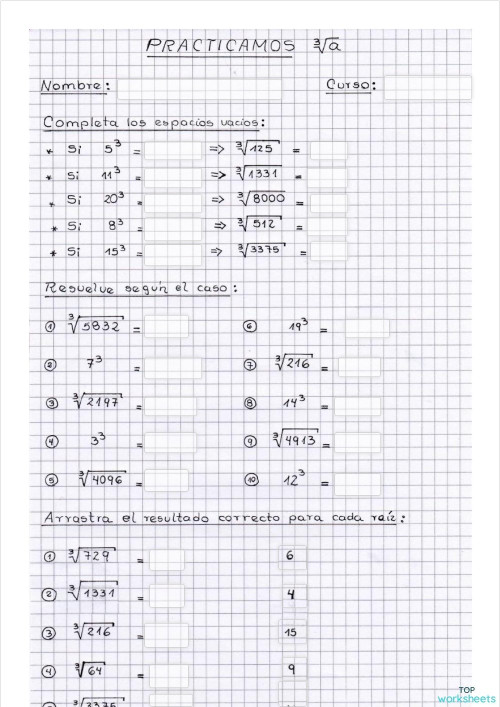 PRACTICAMOS ∛a
Nombre: Curso:
Completa los espacios vacios:
* Si 5³ = => ∛125 =
* Si 11³ = => ∛1331 =
* Si 20³ = => ∛8000 =
* Si 8³ = => ∛512 =
* Si 15³ = => ∛3375 =
Resuelve segun el caso:
① ∛5832 = ⑥ 19³ =
② 7³ = ⑦ ∛216 =
③ ∛2197 = ⑧ 14³ =
④ 3³ = ⑨ ∛4913 =
⑤ ∛4096 = ⑩ 12³ =
Arrastra el resultado correcto para cada raíz:
① ∛729 = 6
② ∛1331 = 4
③ ∛216 = 15
④ ∛64 = 9
∛3375
TOP
worksheets